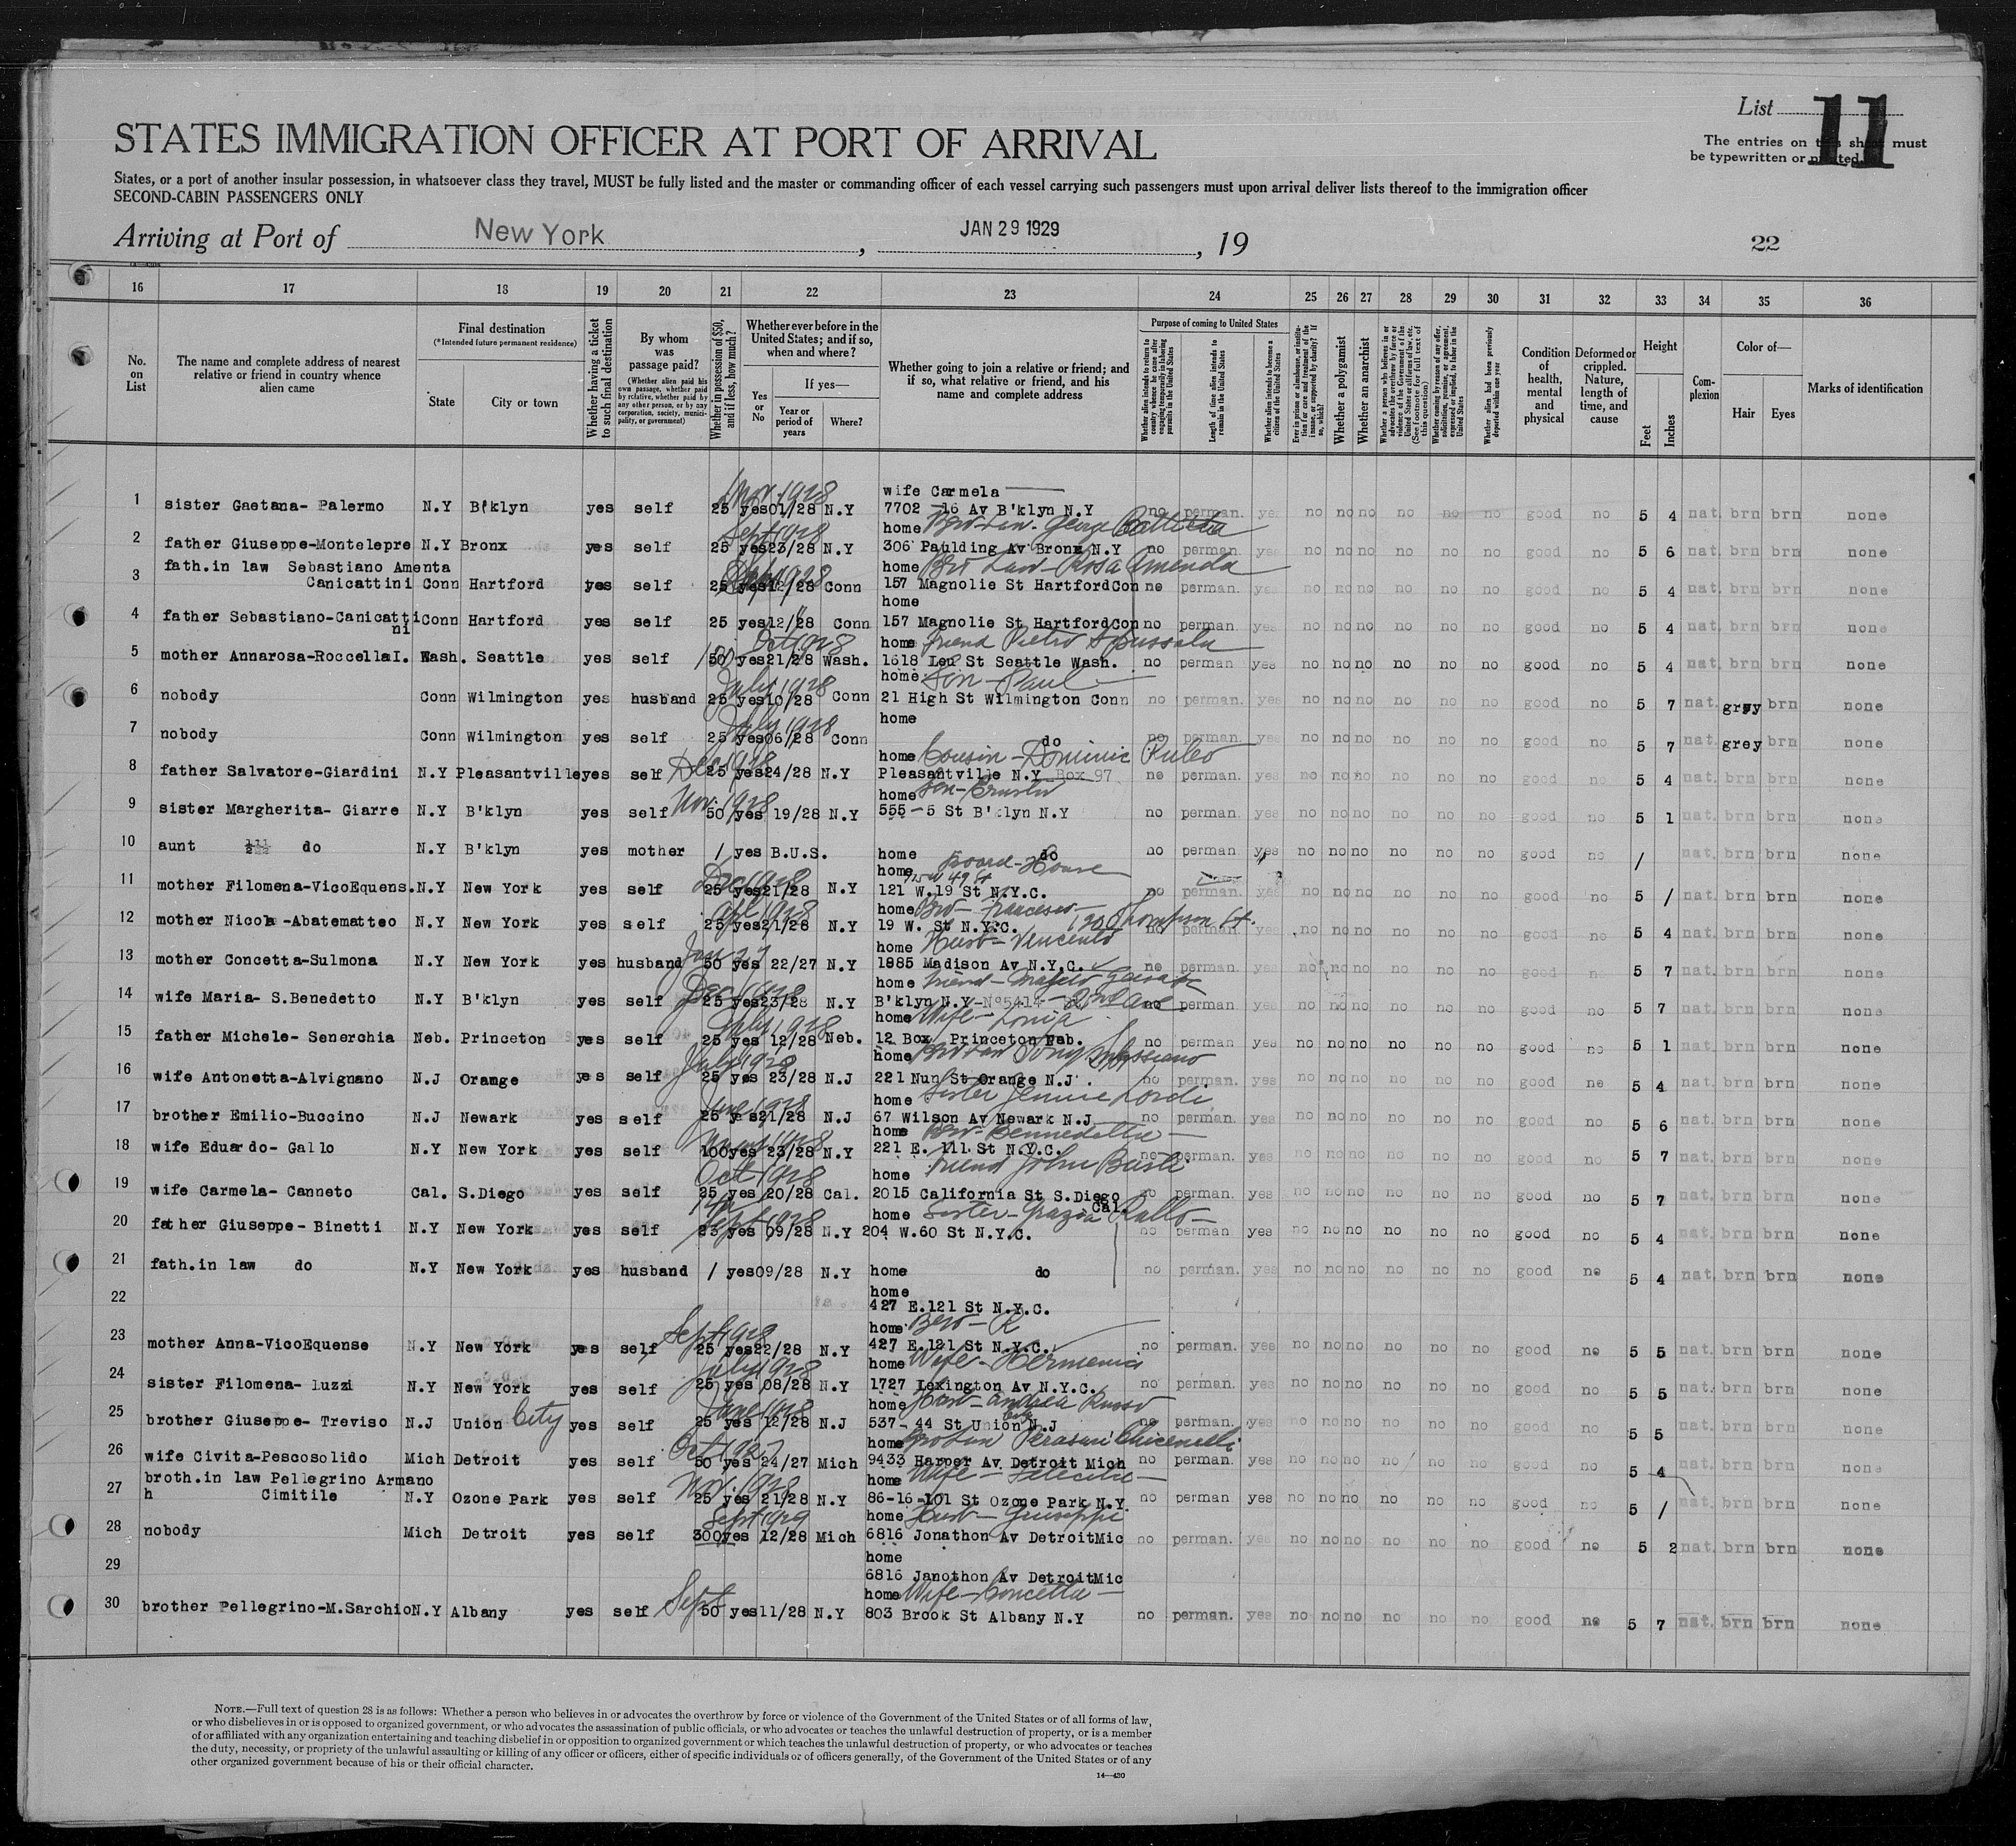 List 11
STATES IMMIGRATION OFFICER AT PORT OF ARRIVAL
The entries on this sheet must
be typewritten or printed.
States, or a port of another insular possession, in whatsoever class they travel, MUST be fully listed and the master or commanding officer of each vessel carrying such passengers must upon arrival deliver lists thereof to the immigration officer
SECOND-CABIN PASSENGERS ONLY
Arriving at Port of New York, JAN 29 1929, 19
22
16 17 18 19 20 21 22 23 24 25 26 27 28 29 30 31 32 33 34 35 36
No. on List
The name and complete address of nearest relative or friend in country whence alien came
Final destination
(*Intended future permanent residence)
State
City or town
Whether having a ticket to such final destination
By whom was passage paid?
(Whether alien paid his own passage, whether paid by relative, whether paid by any other person, or by any corporation, society, municipality, or government)
Whether in possession of $50, and if less, how much?
Whether ever before in the United States; and if so, when and where?
Yes or No
If yes—
Year or period of years
Where?
Whether going to join a relative or friend; and if so, what relative or friend, and his name and complete address
Purpose of coming to United States
Whether alien intends to return to country whence he came after engaging temporarily in laboring pursuits in the United States
Length of time alien intends to remain in the United States
Whether alien intends to become a citizen of the United States
Ever in prison or almshouse, or institution for care and treatment of the insane, or supported by charity? If so, which?
Whether a polygamist
Whether an anarchist
Whether a person who believes in or advocates the overthrow by force or violence of the Government of the United States or all forms of law, etc. (See footnote for full text of this question)
Whether coming by reason of any offer, solicitation, promise, or agreement, expressed or implied, to labor in the United States
Whether alien had been previously deported within one year
Condition of health, mental and physical
Deformed or crippled. Nature, length of time, and cause
Height
Feet
Inches
Complexion
Color of—
Hair
Eyes
Marks of identification
Nov. 1928 wife Carmela
1 sister Gaetana- Palermo N.Y B'klyn yes self 25 yes 01/28 N.Y 7702 -16 Av B'klyn N.Y no perman. yes no no no no no no good no 5 4 nat. brn brn none
Sept 1928 home
2 father Giuseppe-Montelepre N.Y Bronx yes self 25 yes 23/28 N.Y 306 Paulding Av Bronx N.Y no perman. yes no no no no no no good no 5 6 nat. brn brn none
fath.in law Sebastiano Amenta 1928 home Bro Law- Rosa Amenda
3 Canicattini Conn Hartford yes self 25 yes 12/28 Conn 157 Magnolie St Hartford Con no perman. yes no no no no no no good no 5 4 nat. brn brn none
home
4 father Sebastiano-Canicattini Conn Hartford yes self 25 yes 12/28 Conn 157 Magnolie St Hartford Con no perman. yes no no no no no no good no 5 4 nat. brn brn none
Oct 1928 home friend Pietro
5 mother Annarosa-Roccella I. Wash. Seattle yes self 50 yes 21/28 Wash. 1618 Leu St Seattle Wash. no perman yes no no no no no no good no 5 4 nat. brn brn none
July 1928 home Son - Paul
6 nobody Conn Wilmington yes husband 25 yes 10/28 Conn 21 High St Wilmington Conn no perman. yes no no no no no no good no 5 7 nat. grey brn none
July 1928 home
7 nobody Conn Wilmington yes self 25 yes 06/28 Conn do no perman. yes no no no no no no good no 5 7 nat. grey brn none
Dec 1928 home Cousin - Dominic Puleo
8 father Salvatore-Giardini N.Y Pleasantville yes self 25 yes 24/28 N.Y Pleasantville N.Y Box 97 no perman. yes no no no no no no good no 5 4 nat. brn brn none
Nov. 1928 home Son-
9 sister Margherita- Giarre N.Y B'klyn yes self 50 yes 19/28 N.Y 555 - 5 St B'klyn N.Y no perman. yes no no no no no no good no 5 1 nat. brn brn none
10 aunt do N.Y B'klyn yes mother / yes B.U.S. home do no perman. yes no no no no no no good no / nat. brn brn none
Dec 1928 home Board-House
11 mother Filomena-VicoEquens. N.Y New York yes self 25 yes 21/28 N.Y 121 W.19 St N.Y.C. no perman. yes no no no no no no good no 5 / nat. brn brn none
1928 home Bro - Francesco - 120 Thompson St.
12 mother Nicola -Abatematteo N.Y New York yes self 25 yes 21/28 N.Y 19 W. St N.Y.C. no perman. yes no no no no no no good no 5 4 nat. brn brn none
Jan 27 home Husb - Vincenzo
13 mother Concetta-Sulmona N.Y New York yes husband 50 yes 22/27 N.Y 1885 Madison Av N.Y.C. no perman. yes no no no no no no good n 5 7 nat. brn brn none
Dec 1928 home friend -
14 wife Maria- S.Benedetto N.Y B'klyn yes self 25 yes 23/28 N.Y B'klyn N.Y - No 5414 - 2nd Ave no perman. yes no no no no no no good no 5 7 nat. brn brn none
July 1928 home Wife -
15 father Michele- Senerchia Neb. Princeton yes self 25 yes 12/28 Neb. 12 Box Princeton Neb. no perman yes no no no no no no good no 5 1 nat. brn brn none
July 1928 home Tony
16 wife Antonetta-Alvignano N.J Orange yes self 25 yes 23/28 N.J 221 Nun St Orange N.J. no perman. yes no no no no no no good no 5 4 nat. brn brn none
June 1928 home Sister Jennie Lordi
17 brother Emilio-Buccino N.J Newark yes self 25 yes 21/28 N.J 67 Wilson Av Newark N.J no perman. yes no no no no no no good no 5 6 nat. brn brn none
1928 home Bro-
18 wife Eduardo- Gallo N.Y New York yes self 100 yes 23/28 N.Y 221 E. 111 St N.Y.C. no perman. yes no no no no no no good no 5 7 nat. brn brn none
Oct 1928 home friend John
19 wife Carmela- Canneto Cal. S.Diego yes self 25 yes 20/28 Cal. 2015 California St S.Diego Cal. no perman. yes no no no no no no good no 5 7 nat. brn brn none
Sept 1928 home Sister- Grazia Rallo
20 father Giuseppe- Binetti N.Y New York yes self 23 yes 09/28 N.Y 204 W.60 St N.Y.C. no perman yes no no no no no no good no 5 4 nat. brn brn none
21 fath.in law do N.Y New York yes husband / yes 09/28 N.Y home do no perman. yes no no no no no no good no 5 4 nat. brn brn none
22 home
427 E.121 St N.Y.C.
Sept 1928 home Bro - R
23 mother Anna-VicoEquense N.Y New York yes self 25 yes 22/28 N.Y 427 E.121 St N.Y.C. no perman. yes no no no no no no good no 5 5 nat. brn brn none
July 1928 home Wife -
24 sister Filomena- Luzzi N.Y New York yes self 25 yes 08/28 N.Y 1727 Lexington Av N.Y.C. no perman. yes no no no no no no good no 5 5 nat. brn brn none
June 1928 home Andrea Russo
25 brother Giuseppe- Treviso N.J Union City yes self 25 yes 12/28 N.J 537- 44 St Union City N.J no perman. yes no no no no no no good no 5 5 nat. brn brn none
Oct 1927 home
26 wife Civita-Pescosolido Mich Detroit yes self 50 yes 24/27 Mich 9433 Harper Av Detroit Mich no perman. yes no no no no no no good no 5 4 nat. brn brn none
broth.in law Pellegrino Armano Nov. 1928 home Wife -
27 h Cimitile N.Y Ozone Park yes self 25 yes 21/28 N.Y 86-16-101 St Ozone Park N.Y. no perman yes no no no no no no good no 5 / nat. brn brn none
Sept 1929 home Husb - Giuseppe
28 nobody Mich Detroit yes self 300 yes 12/28 Mich 6816 Jonathon Av Detroit Mic no perman. yes no no no no no no good no 5 2 nat. brn brn none
29 home
6816 Janothon Av Detroit Mic
Sept home Wife - Concetta -
30 brother Pellegrino-M.Sarchio N.Y Albany yes self 50 yes 11/28 N.Y 803 Brook St Albany N.Y no perman. yes no no no no no no good no 5 7 nat. brn brn none
NOTE.—Full text of question 28 is as follows: Whether a person who believes in or advocates the overthrow by force or violence of the Government of the United States or of all forms of law,
or who disbelieves in or is opposed to organized government, or who advocates the assassination of public officials, or who advocates or teaches the unlawful destruction of property, or is a member
of or affiliated with any organization entertaining and teaching disbelief in or opposition to organized government or which teaches the unlawful destruction of property, or who advocates or teaches
the duty, necessity, or propriety of the unlawful assaulting or killing of any officer or officers, either of specific individuals or of officers generally, of the Government of the United States or of any
other organized government because of his or their official character.
14—430